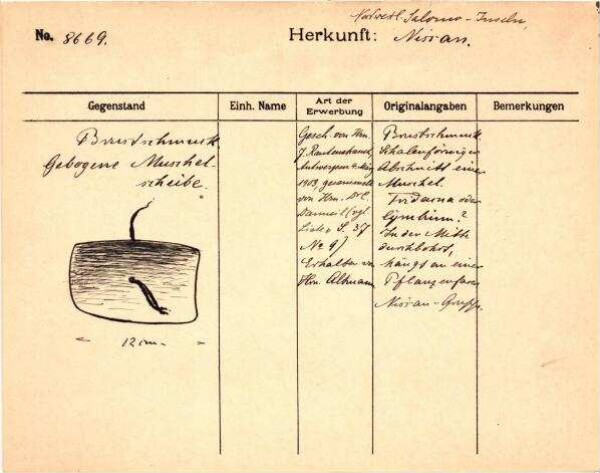 No. 8669.
Herkunft: Nordwestl. Salomo-Inseln,
Nissan.
Gegenstand
Einh. Name
Art der Erwerbung
Originalangaben
Bemerkungen
Brustschmuck
Gebogene Muschel-
scheibe.
12 cm.
Gesch. von Hrn.
J. Rautenstrauch,
Antwerpen
1903, gesammelt
von Hrn. Dr.
(vgl.
Liste S. 37
No 9)
Erhalten von
Hrn. Altmann
Brustschmuck
Schalenförmiger
Abschnitt einer
Muschel.
Tridacna oder
Cymbium?
In der Mitte
durchbohrt,
hängt an einer
Pflanzenfaser
Nissan-Gruppe.